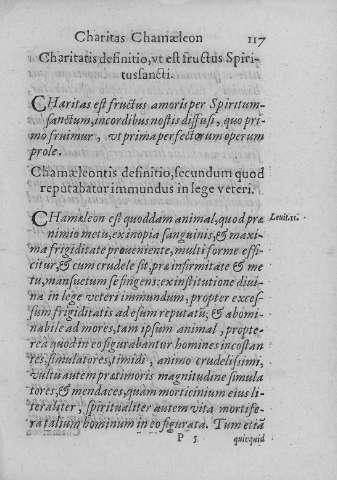 Charitas Chamæleon 117
Charitatis definitio, vt est fructus Spiri-
tussancti.
CHaritas est fructus amoris per Spiritum-
sanctum, in cordibus nostis diffusi, quo pri
mo fruimur, vt prima perfectorum operum
prole.
Chamæleontis definitio, secundum quod
reputabatur immundus in lege veteri.
CHamæleon est quoddam animal, quod præ Leuit.11.
nimio metu, ex inopia sanguinis, & maxi
ma frigiditate proueniente, multi forme effi
citur, & cum crudele sit, præ infirmitate & me
tu, mansuetum se fingens: ex institutione diui
na in lege veteri immundum, propter exces
sum frigiditatis ad esum reputatū; & abomi
nabile ad mores, tam ipsum animal, propte-
rea quod in eo figurabantur homines incōstan
tes, simulatores, timidi, animo crudelissimi,
vultu autem præ timoris magnitudine simula
tores, & mendaces, quam morticinium eius lit
teraliter, spiritualiter autem vita mortife-
ra talium hominum in eo figurata. Tum etiā
P 5 quicquid